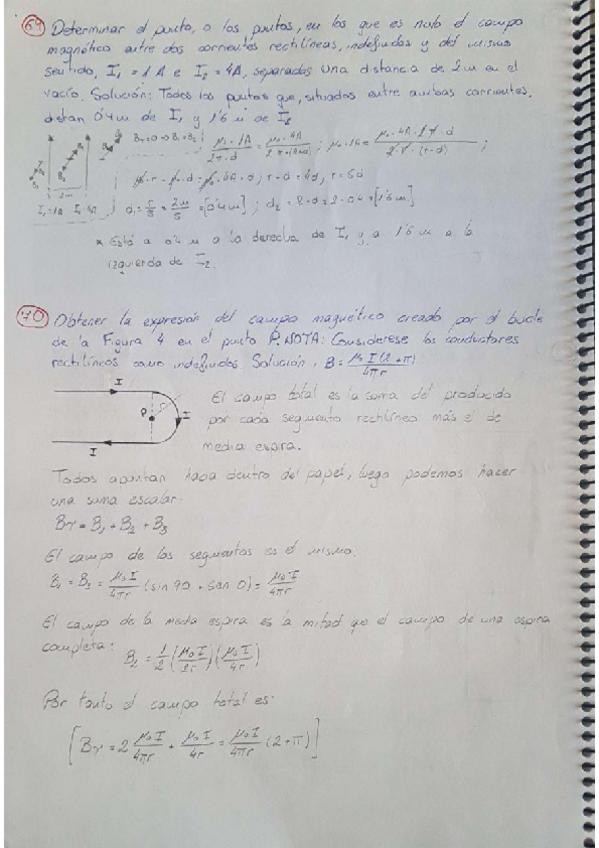 69 Determinar el punto, o los puntos, en los que es nulo el campo
magnético entre dos corrientes rectilíneas, indefinidas y del mismo
sentido, I₁ = 1 A e I₂ = 4A, separados una distancia de 2m en el
vacío. Solución: Todos los puntos que, situados entre ambas corrientes,
distan 0'4 m de I₁ y 1'6 m de I₂
2m
I₁=1A I₂=4A
d = r/5 = 2m/5 = [0'4m] ; d₂ = 2-d = 2-0'4 = [1'6m]
* Está a 0'4 m a la derecha de I₁ y a 1'6 m a la
izquierda de I₂.
70 Obtener la expresión del campo magnético creado por el bucle
de la Figura 4 en el punto P. NOTA: Considerese los conductores
rectilíneos como indefinidos. Solución. B = μ₀ I(2+π)/4πr
I
P r I
I
El campo total es la suma del producido
por cada segmento rectilíneo más el de
media espira.
Todos apuntan hacia dentro del papel, luego podemos hacer
una suma escalar.
B_T = B₁ + B₂ + B₃
El campo de los segmentos es el mismo.
B₁ = B₃ = μ₀ I/4πr (sen 90 + sen 0) = μ₀ I/4πr
El campo de la media espira es la mitad que el campo de una espira
completa: B₂ = 1/2 (μ₀ I/2r)(μ₀ I/4r)
Por tanto el campo total es:
[B_T = 2 μ₀ I/4πr + μ₀ I/4r = μ₀ I/4πr (2+π)]